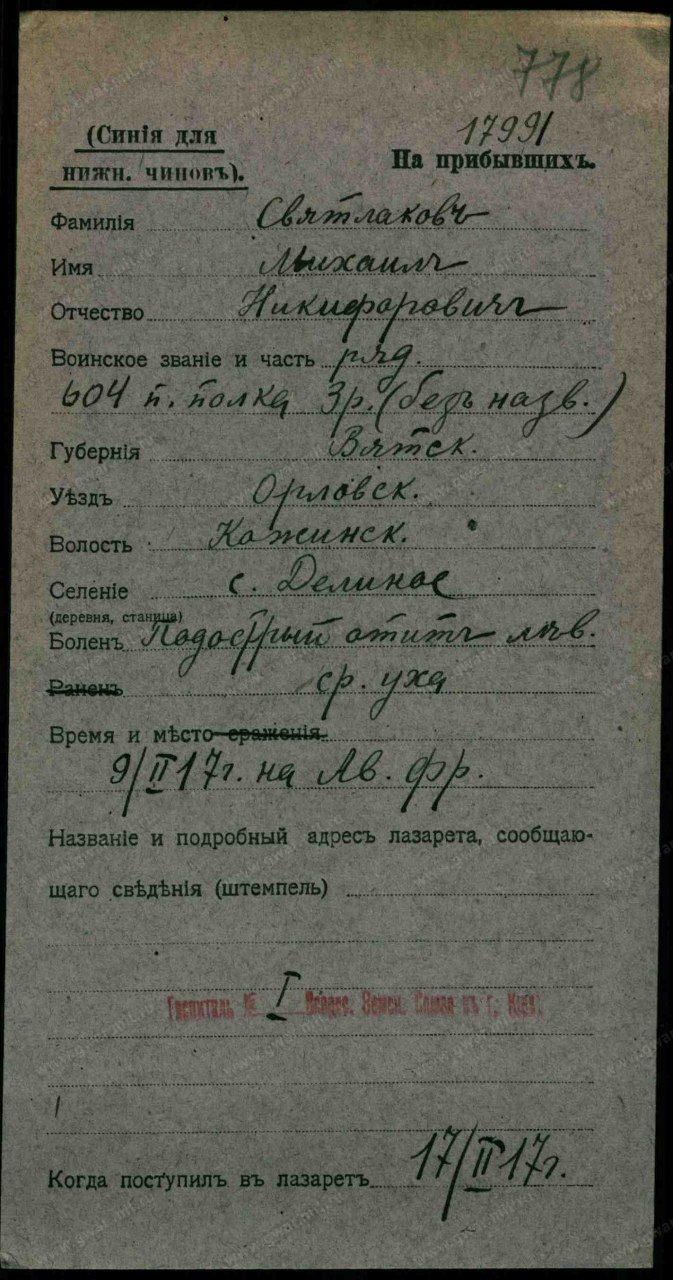 778
(Синія для
нижн. чиновъ).
17991
На прибывшихъ.
Фамилія Святлаковъ
Имя Михаилъ
Отчество Никифоровичъ
Воинское званіе и часть ряд.
604 п. полка 3 р. (безъ назв.)
Губернія Вятск.
Уѣздъ Орловск.
Волость Кожинск.
Селеніе с. Делиное
(деревня, станица)
Боленъ Подострый отитъ лѣв.
Раненъ ср. уха
Время и мѣсто сраженія
9/II 17 г. на фр.
Названіе и подробный адресъ лазарета, сообщаю-
щаго свѣдѣнія (штемпель)
Госпиталь № I Земск. Союза въ г.
Когда поступилъ въ лазаретъ 17/II 17 г.